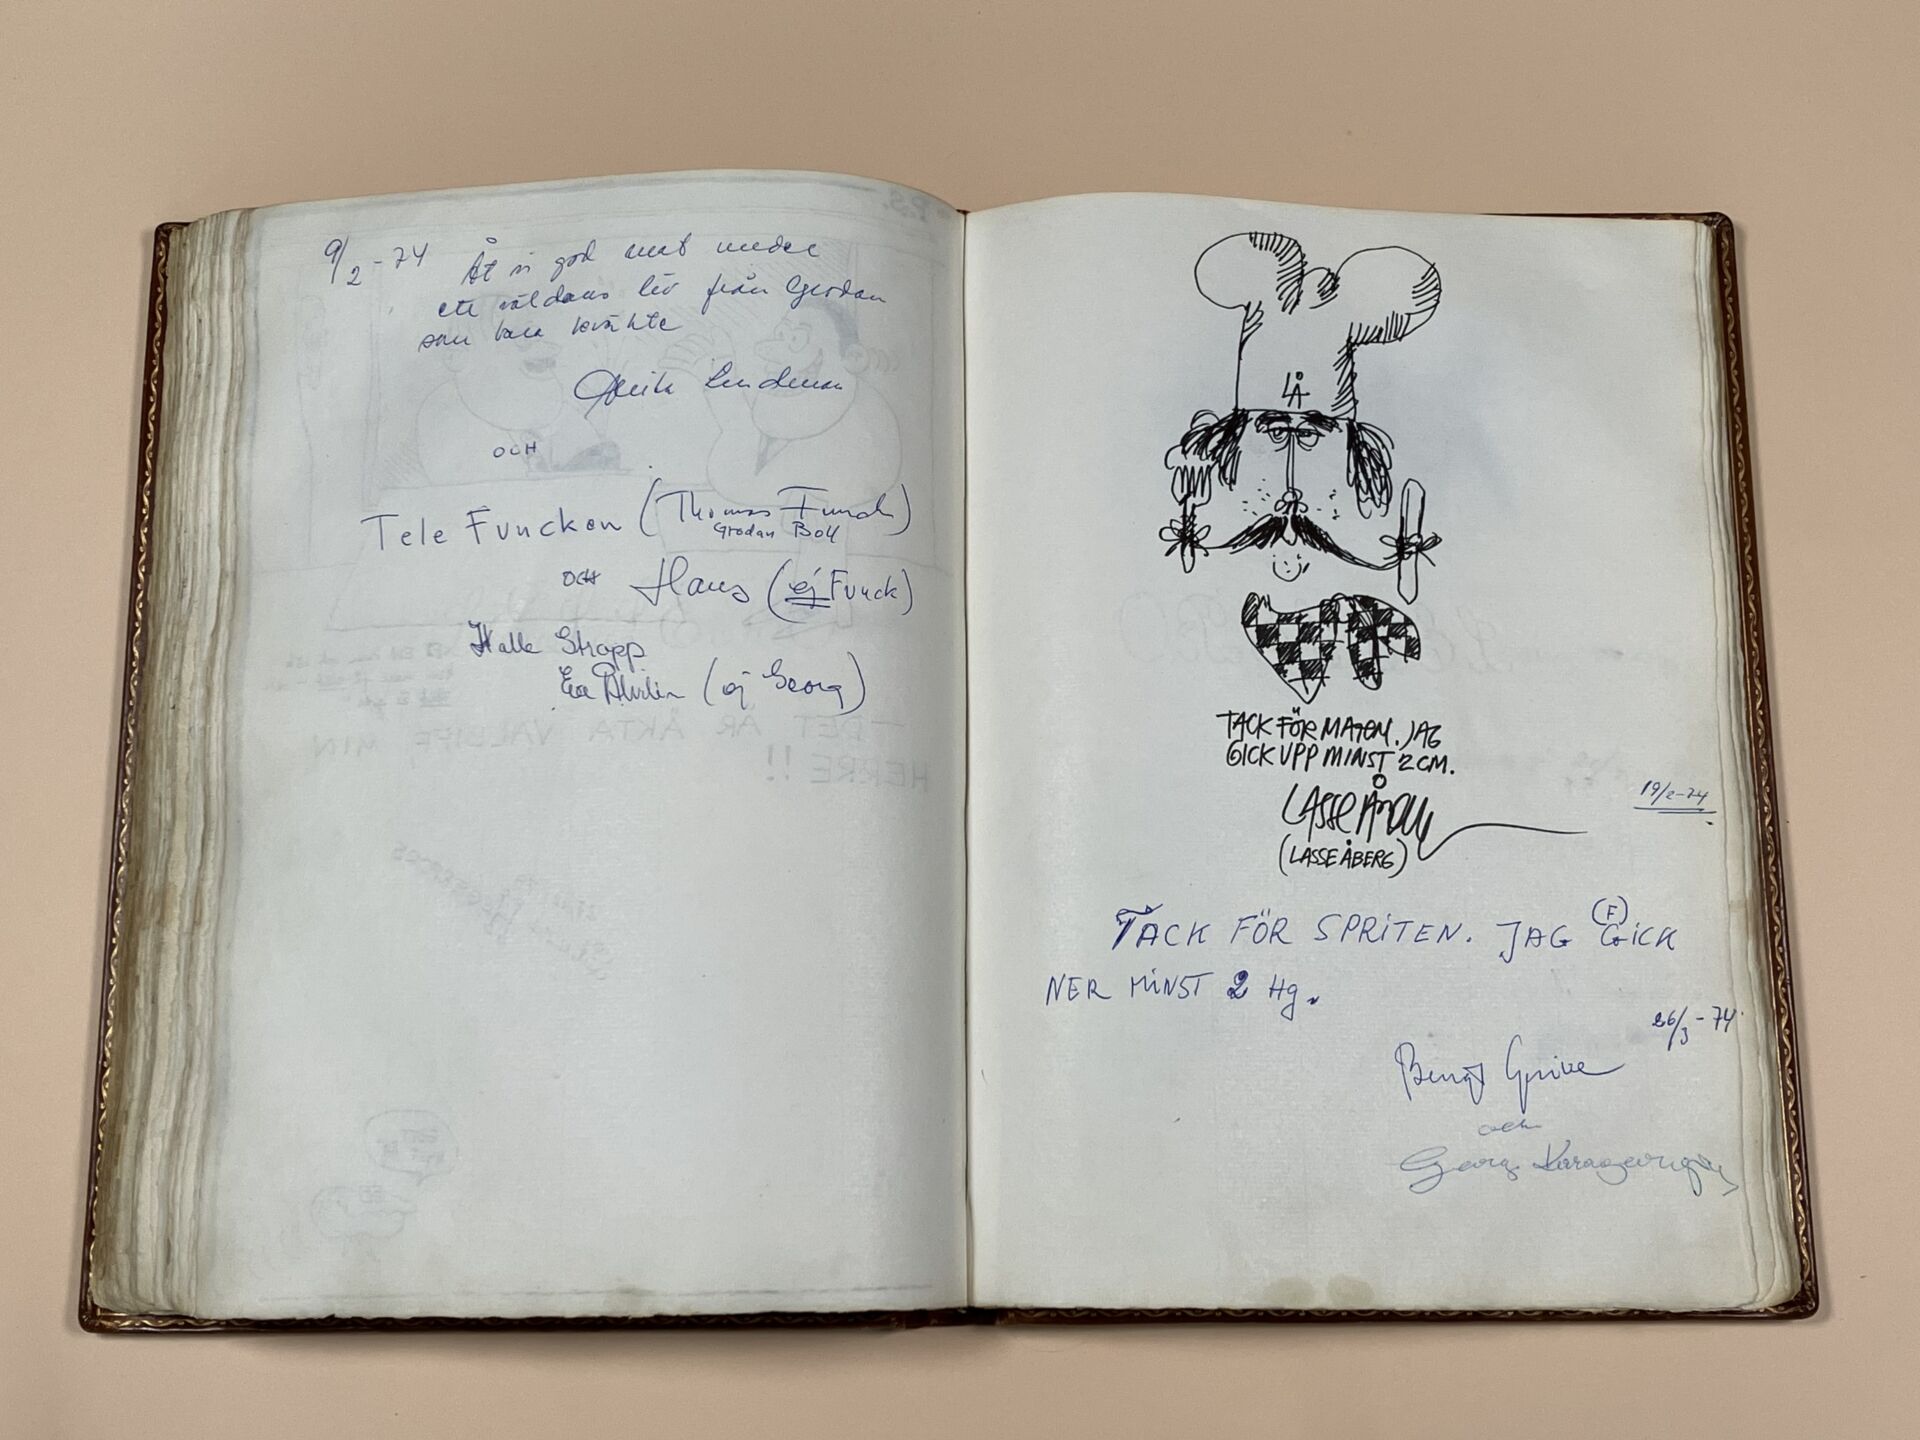 9/2-74 Åt vi god mat under
ett väldans liv från Grodan
som bara kväkte
Lindman
OCH
Tele Funcken (Thomas Funck)
Grodan Boll
OCH Hans (ej Funck)
Halle Stropp
Eva (ej Georg)
LÅ
TACK FÖR MATEN. JAG
GICK UPP MINST 2 CM.
LASSE ÅBERG
(LASSE ÅBERG)
19/2-74
TACK FÖR SPRITEN. JAG (F) GICK
NER MINST 2 Hg.
26/3-74
Bengt Grive
och
Georg
P.S.
— DET ÄR ÄKTA VALBIFF MIN
HERRE!!